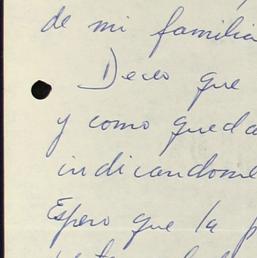 de mi familia
Deceo que
y como queda
indicandome
Espero que la p